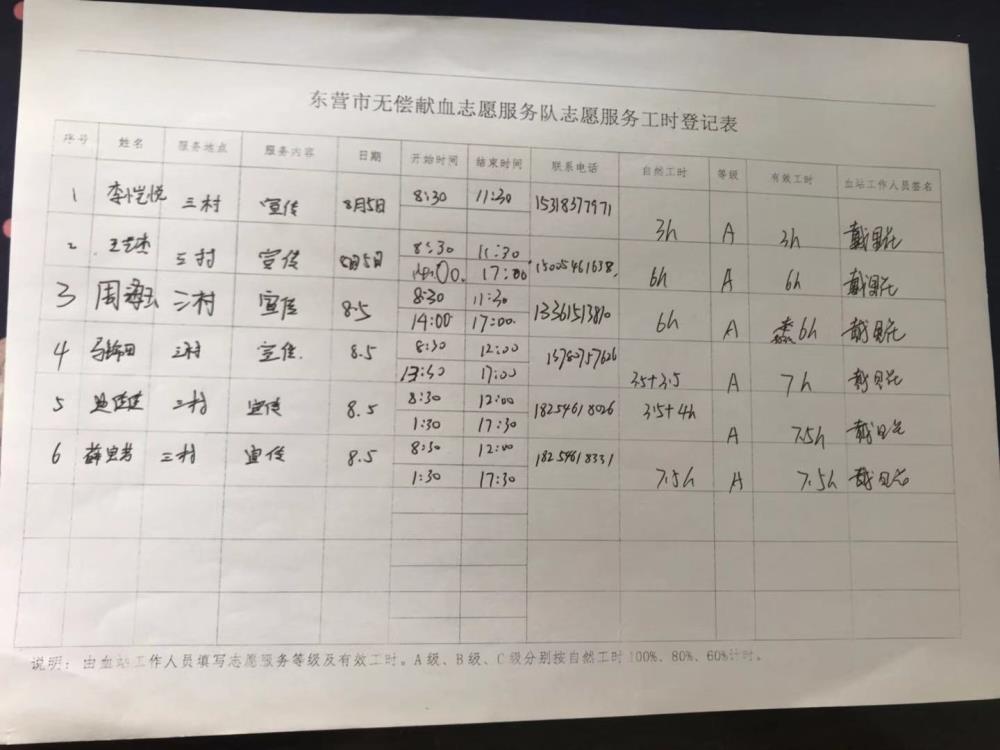 东营市无偿献血志愿服务队志愿服务工时登记表
序号 姓名 服务地点 服务内容 日期 开始时间 结束时间 联系电话 自然工时 等级 有效工时 血站工作人员签名
1 李恺悦 三村 宣传 8月5日 8:30 11:30 15318377971 3h A 3h
2 三村 宣传 8月5日 8:30 11:30 15005461638 6h A 6h
14:00 17:00
3 周 三村 宣传 8.5 8:30 11:30 13361513810 6h A 6h
14:00 17:00
4 三村 宣传 8.5 8:30 12:00 13780757626 3.5+3.5 A 7h
13:30 17:00
5 三村 宣传 8.5 8:30 12:00 18254618026 3.5+4h A 7.5h
1:30 17:30
6 薛 三村 宣传 8.5 8:30 12:00 18254618331 7.5h A 7.5h
1:30 17:30
说明：由血站工作人员填写志愿服务等级及有效工时。A级、B级、C级分别按自然工时100%、80%、60%计时。